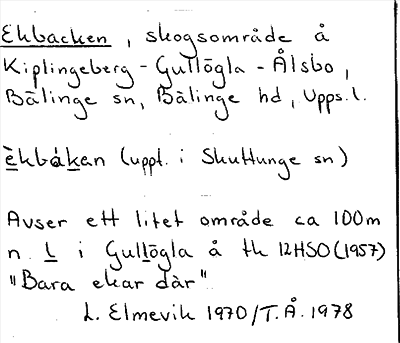 Ekbacken, skogsområde å
Kiplingeberg - Gullögla - Ålsbo,
Bälinge sn, Bälinge hd, Upps.l.
èkbákan (uppt. i Skuttunge sn)
Avser ett litet område ca 100m
n. L i Gullögla å tk 12HSO (1957)
"Bara ekar där"
L. Elmevik 1970/T.Å. 1978